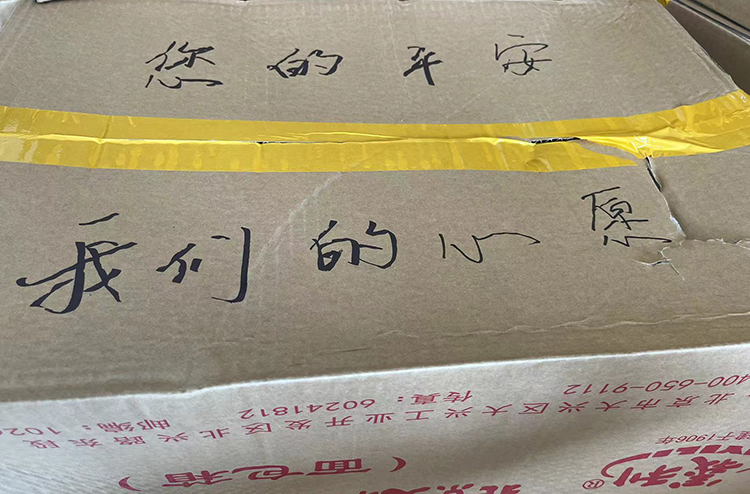 您的平安
我们的心愿
400-650-9112
北京市大兴区大兴工业开发区北兴路东段
传真：60241812
邮编：102
建于1906年
义利®
（面包箱）
北京